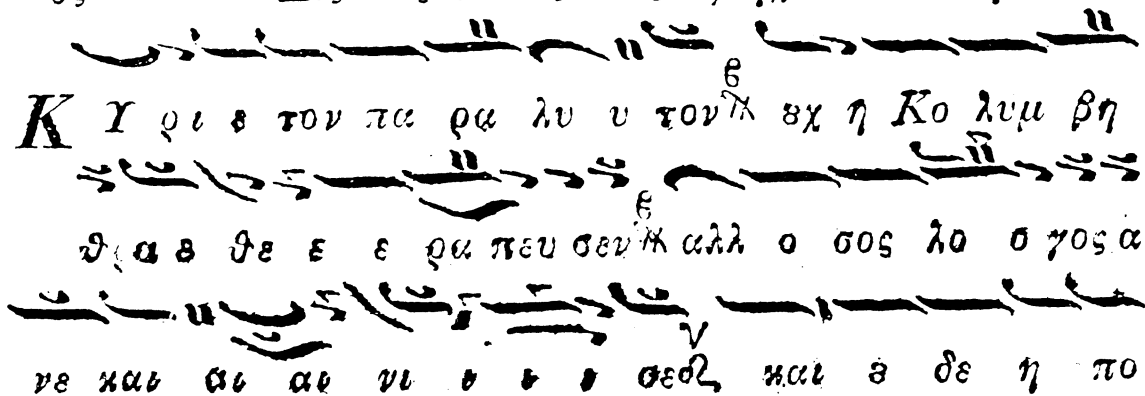 Κ Υ ρι ε τον πα ρα λυ υ τον ȣχ η Κο λυμ βη
θρα ε θε ε ε ρα πευ σεν αλλ ο σος λο ο γος α
νε και αι αι νι ι ι ι σε και ȣ δε η πο